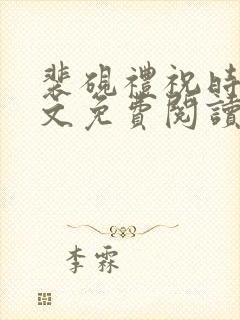 裴硯禮祝時
文免費閱讀
李霖